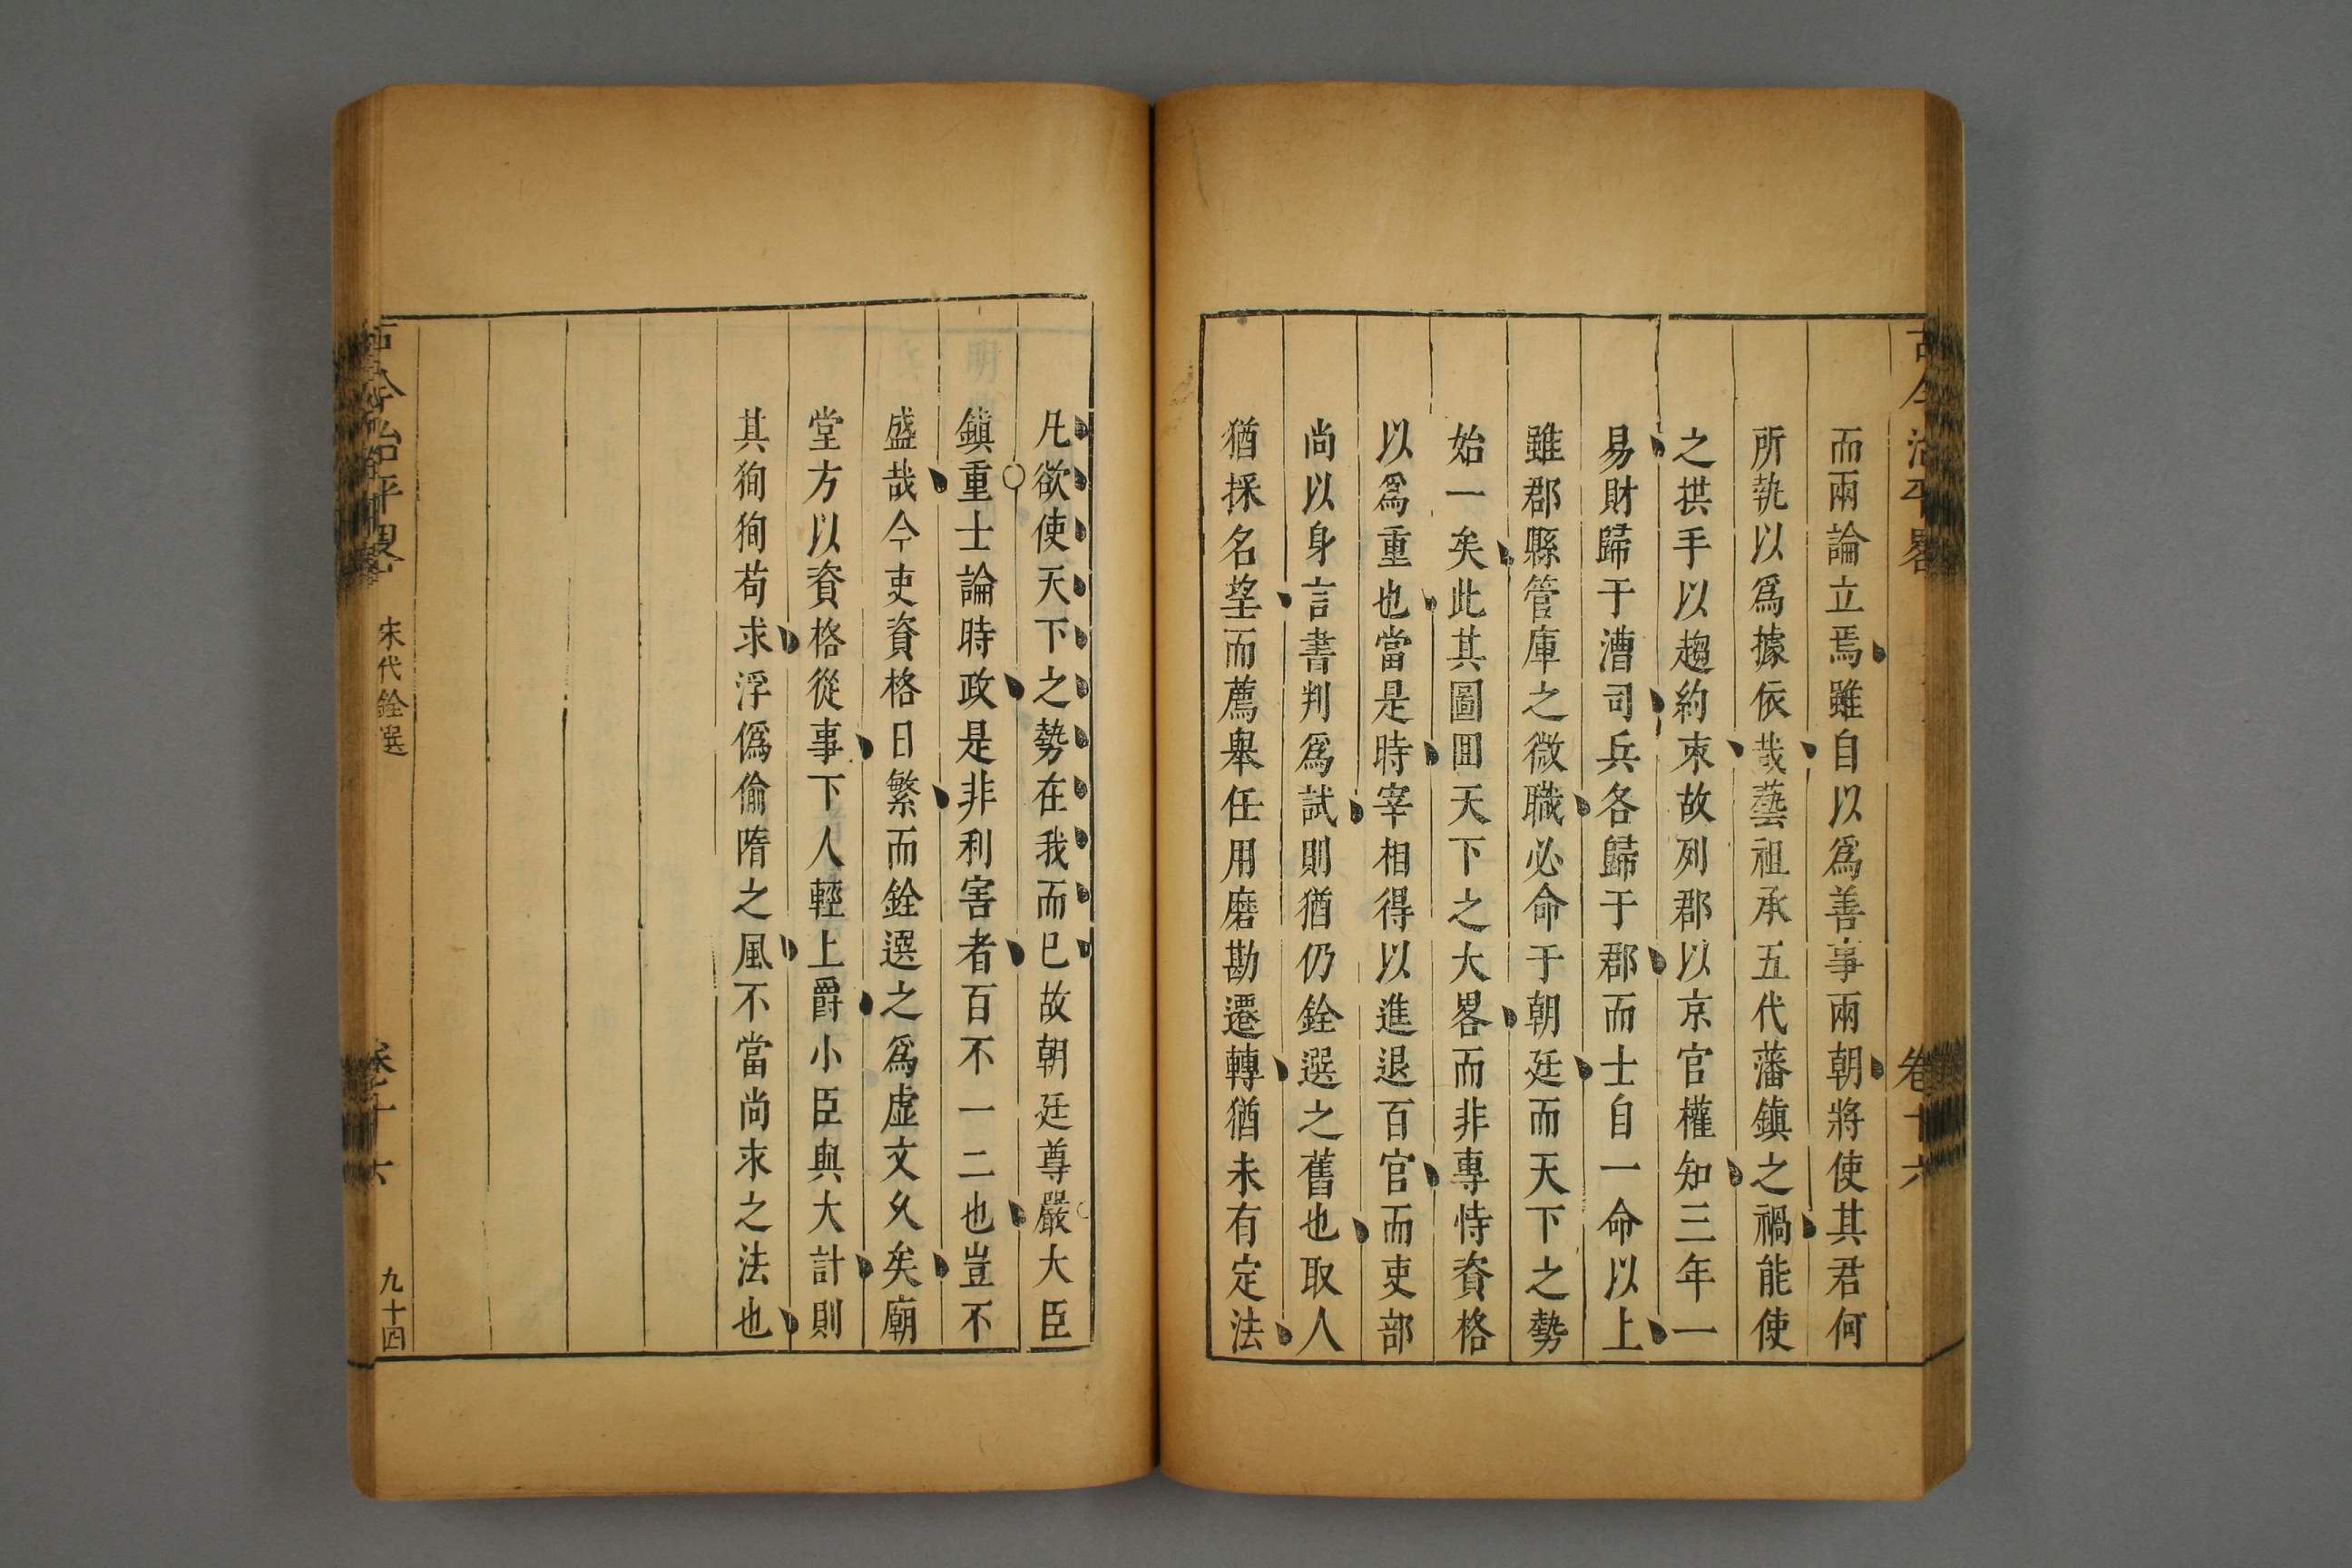 古今治平畧
卷十六
而兩論立焉雖自以爲善事兩朝將使其君何
所執以爲據依哉藝祖承五代藩鎮之禍能使
之拱手以趨約束故列郡以京官權知三年一
易財歸于漕司兵各歸于郡而士自一命以上
雖郡縣管庫之微職必命于朝廷而天下之勢
始一矣此其圖囬天下之大畧而非專恃資格
以爲重也當是時宰相得以進退百官而吏部
尚以身言書判爲試則猶仍銓選之舊也取人
猶採名望而薦舉任用磨勘遷轉猶未有定法
凡欲使天下之勢在我而已故朝廷尊嚴大臣
鎮重士論時政是非利害者百不一二也豈不
盛哉今吏資格日繁而銓選之爲虛文久矣廟
堂方以資格從事下人輕上爵小臣與大計則
其狥狥苟求浮僞偷隋之風不當尚求之法也
古今治平畧
宋代銓選
卷十六
九十四